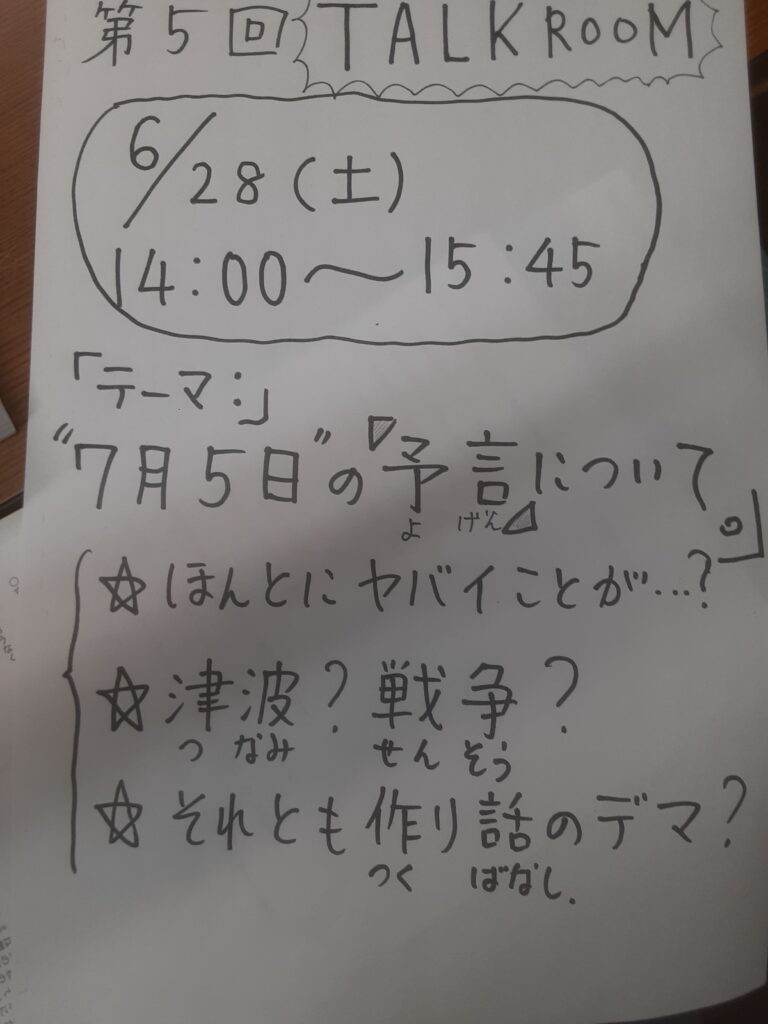 第5回 TALK ROOM
6/28(土)
14:00～15:45
「テーマ:」
"7月5日"の『予言』について。」
よ げん
☆ほんとにヤバイことが…?
☆津波?戦争?
つ なみ せん そう
☆それとも作り話のデマ?
つく ばなし.